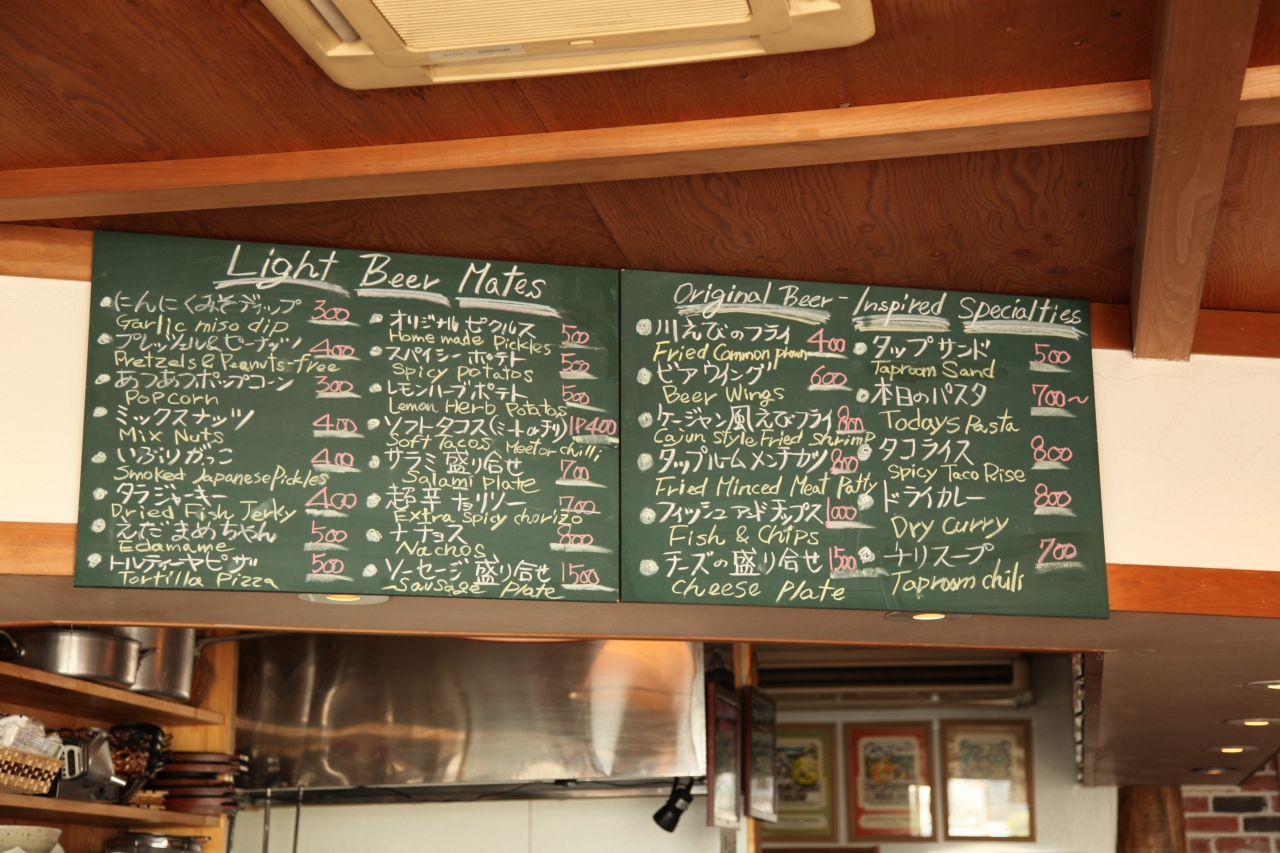 Light Beer Mates
にんにくみそディップ 300
Garlic miso dip
プレッツェル&ピーナッツ 400
Pretzels & Peanuts-free
あつあつポップコーン 300
POPCorn
ミックスナッツ 400
Mix Nuts
いぶりがっこ 400
Smoked Japanese Pickles
タラジャーキー 400
Dried Fish Jerky
えだまめちゃん 500
Edamame
トルティーヤピザ 500
Tortilla Pizza
オリジナルピクルス 500
Home made Pickles
スパイシーポテト 500
Spicy potatos
レモンハーブポテト 500
Lemon Herb Potatos
ソフトタコス(ミートorチリ) 1P400
Soft Tacos Meet or chilli
サラミ盛り合せ 700
Salami plate
超辛チョリソー 700
Extra Spicy chorizo
ナチョス 800
Nachos
ソーセージ盛り合せ 1500
Sausage Plate
Original Beer-Inspired Specialties
川えびのフライ 400
Fried Common
ビアウイング 600
Beer Wings
ケージャン風えびフライ 800
Cajun Style Fried Shrimp
タップルームメンチカツ 800
Fried Minced Meat Patty
フィッシュアンドチップス 1000
Fish & Chips
チーズの盛り合せ 1500
Cheese Plate
タップサンド 500
Taproom Sand
本日のパスタ 700~
Todays Pasta
タコライス 800
Spicy Taco Rise
ドライカレー 800
Dry Curry
チリスープ 700
Taproom chili